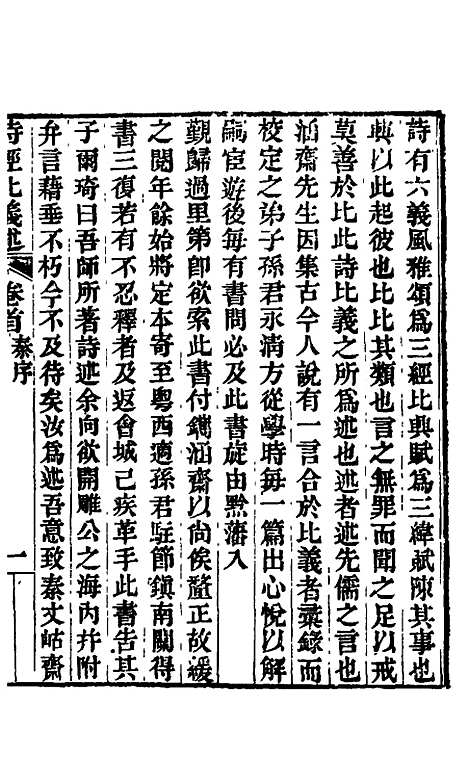 詩有六義風雅頌爲三經比興賦爲三緯賦陳其事也
興以此起彼也比比其類也言之無罪而聞之足以戒
莫善於比此詩比義之所爲述也述者述先儒之言也
涵齋先生因集古今人說有一言合於比義者彙錄而
校定之弟子孫君永淸方從學時每一篇出心悅以解
嗣宦遊後每有書問必及此書旋由黔藩入
覲歸過里第卽欲索此書付鐫涵齋以尚俟釐正故緩
之閱年餘始將定本寄至粵西適孫君駐節鎭南關得
書三復若有不忍釋者及返會城己疾革手此書告其
子爾琦曰吾師所著詩述余向欲開雕公之海內幷附
弁言藉垂不朽今不及待矣汝爲述吾意致秦丈岵齋
詩經比義述 卷首 秦序 一